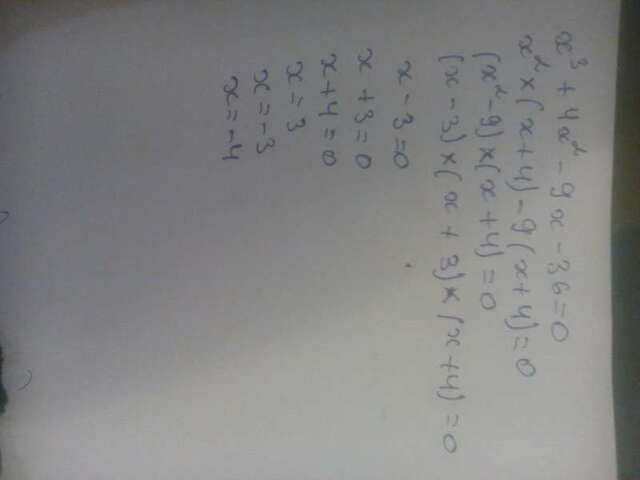 x³ + 4x² - 9x - 36 = 0
x² × (x + 4) - 9(x + 4) = 0
(x² - 9) × (x + 4) = 0
(x - 3) × (x + 3) × (x + 4) = 0
x - 3 = 0
x + 3 = 0
x + 4 = 0
x = 3
x = -3
x = -4